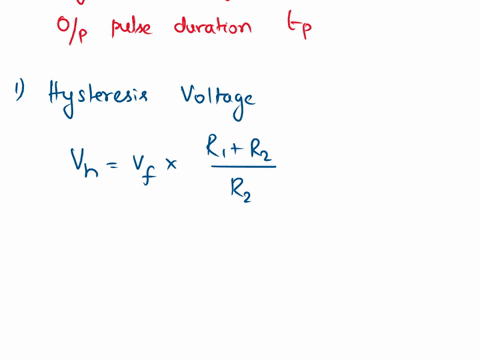 O/p pulse duration tp
1) Hysteresis Voltage
Vh = Vf × (R1 + R2) / R2